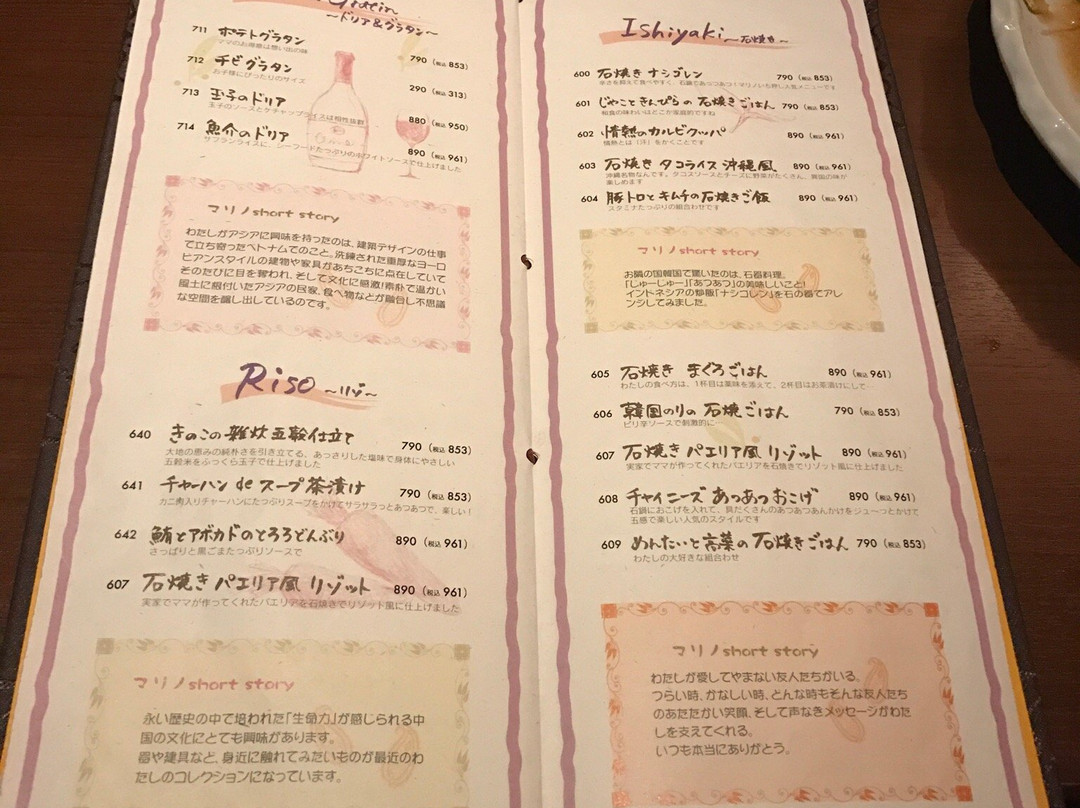 Gratin
～ドリア&グラタン～
711 ポテトグラタン 790 (税込 853)
ママのお得意は想い出の味
712 チビグラタン 290 (税込 313)
お子様にぴったりのサイズ
713 玉子のドリア 880 (税込 950)
玉子のソースとケチャップライスは相性抜群
714 魚介のドリア 890 (税込 961)
サフランライスに、シーフードたっぷりのホワイトソースで仕上げました
マリノ short story
わたしがアジアに興味を持ったのは、建築デザインの仕事
で立ち寄ったベトナムでのこと。洗練された重厚なヨーロ
ピアンスタイルの建物や家具があちこちに点在していて
そのたびに目を奪われ、そして文化に感激!素朴で温かい
風土に根付いたアジアの民家、食べ物などが融合し不思議
な空間を醸し出しているのです。
Riso ～リゾ～
640 きのこの雑炊 五穀仕立て 790 (税込 853)
大地の恵みの純朴さを引き立てる、あっさりした塩味で身体にやさしい
五穀米をふっくら玉子で仕上げました
641 チャーハン de スープ茶漬け 790 (税込 853)
カニ肉入りチャーハンにたっぷりスープをかけてサラサラっとあつあつで、楽しい!
642 鮪とアボカドのとろろどんぶり 890 (税込 961)
さっぱりと黒ごまたっぷりソースで
607 石焼き パエリア風 リゾット 890 (税込 961)
実家でママが作ってくれたパエリアを石焼きでリゾット風に仕上げました
マリノ short story
永い歴史の中で培われた「生命力」が感じられる中
国の文化にとても興味があります。
器や建具など、身近に触れてみたいものが最近のわ
たしのコレクションになっています。
Ishiyaki ～石焼き～
600 石焼き ナシゴレン 790 (税込 853)
辛さを抑えて食べやすく、石鍋であつあつ!マリノいち押し人気メニューです
601 じゃこときんぴらの 石焼きごはん 790 (税込 853)
和食の味わいはどこか家庭的ですね
602 情熱のカルビクッパ 890 (税込 961)
情熱とは「汗」をかくことです
603 石焼き タコライス 沖縄風 890 (税込 961)
沖縄名物なんです。タコスソースとチーズに野菜がたくさん、異国の味が
楽しめます
604 豚トロとキムチの石焼きご飯 890 (税込 961)
スタミナたっぷりの組合わせです
マリノ short story
お隣の国韓国で驚いたのは、石器料理。
「じゅーじゅー」「あつあつ」の美味しいこと!
インドネシアの炒飯「ナシゴレン」を石の器でアレ
ンジしてみました。
605 石焼き まぐろごはん 890 (税込 961)
わたしの食べ方は、1杯目は薬味を添えて、2杯目はお茶漬けにして…
606 韓国のりの 石焼ごはん 790 (税込 853)
ピリ辛ソースで刺激的に…
607 石焼き パエリア風 リゾット 890 (税込 961)
実家でママが作ってくれたパエリアを石焼きでリゾット風に仕上げました
608 チャイニーズ あつあつおこげ 890 (税込 961)
石鍋におこげを入れて、具だくさんのあつあつあんかけをジューっとかけて
五感で楽しい人気のスタイルです
609 めんたいと高菜の 石焼きごはん 790 (税込 853)
わたしの大好きな組合わせ
マリノ short story
わたしが愛してやまない友人たちがいる。
つらい時、かなしい時、どんな時もそんな友人たち
のあたたかい笑顔、そして声なきメッセージがわた
しを支えてくれる。
いつも本当にありがとう。